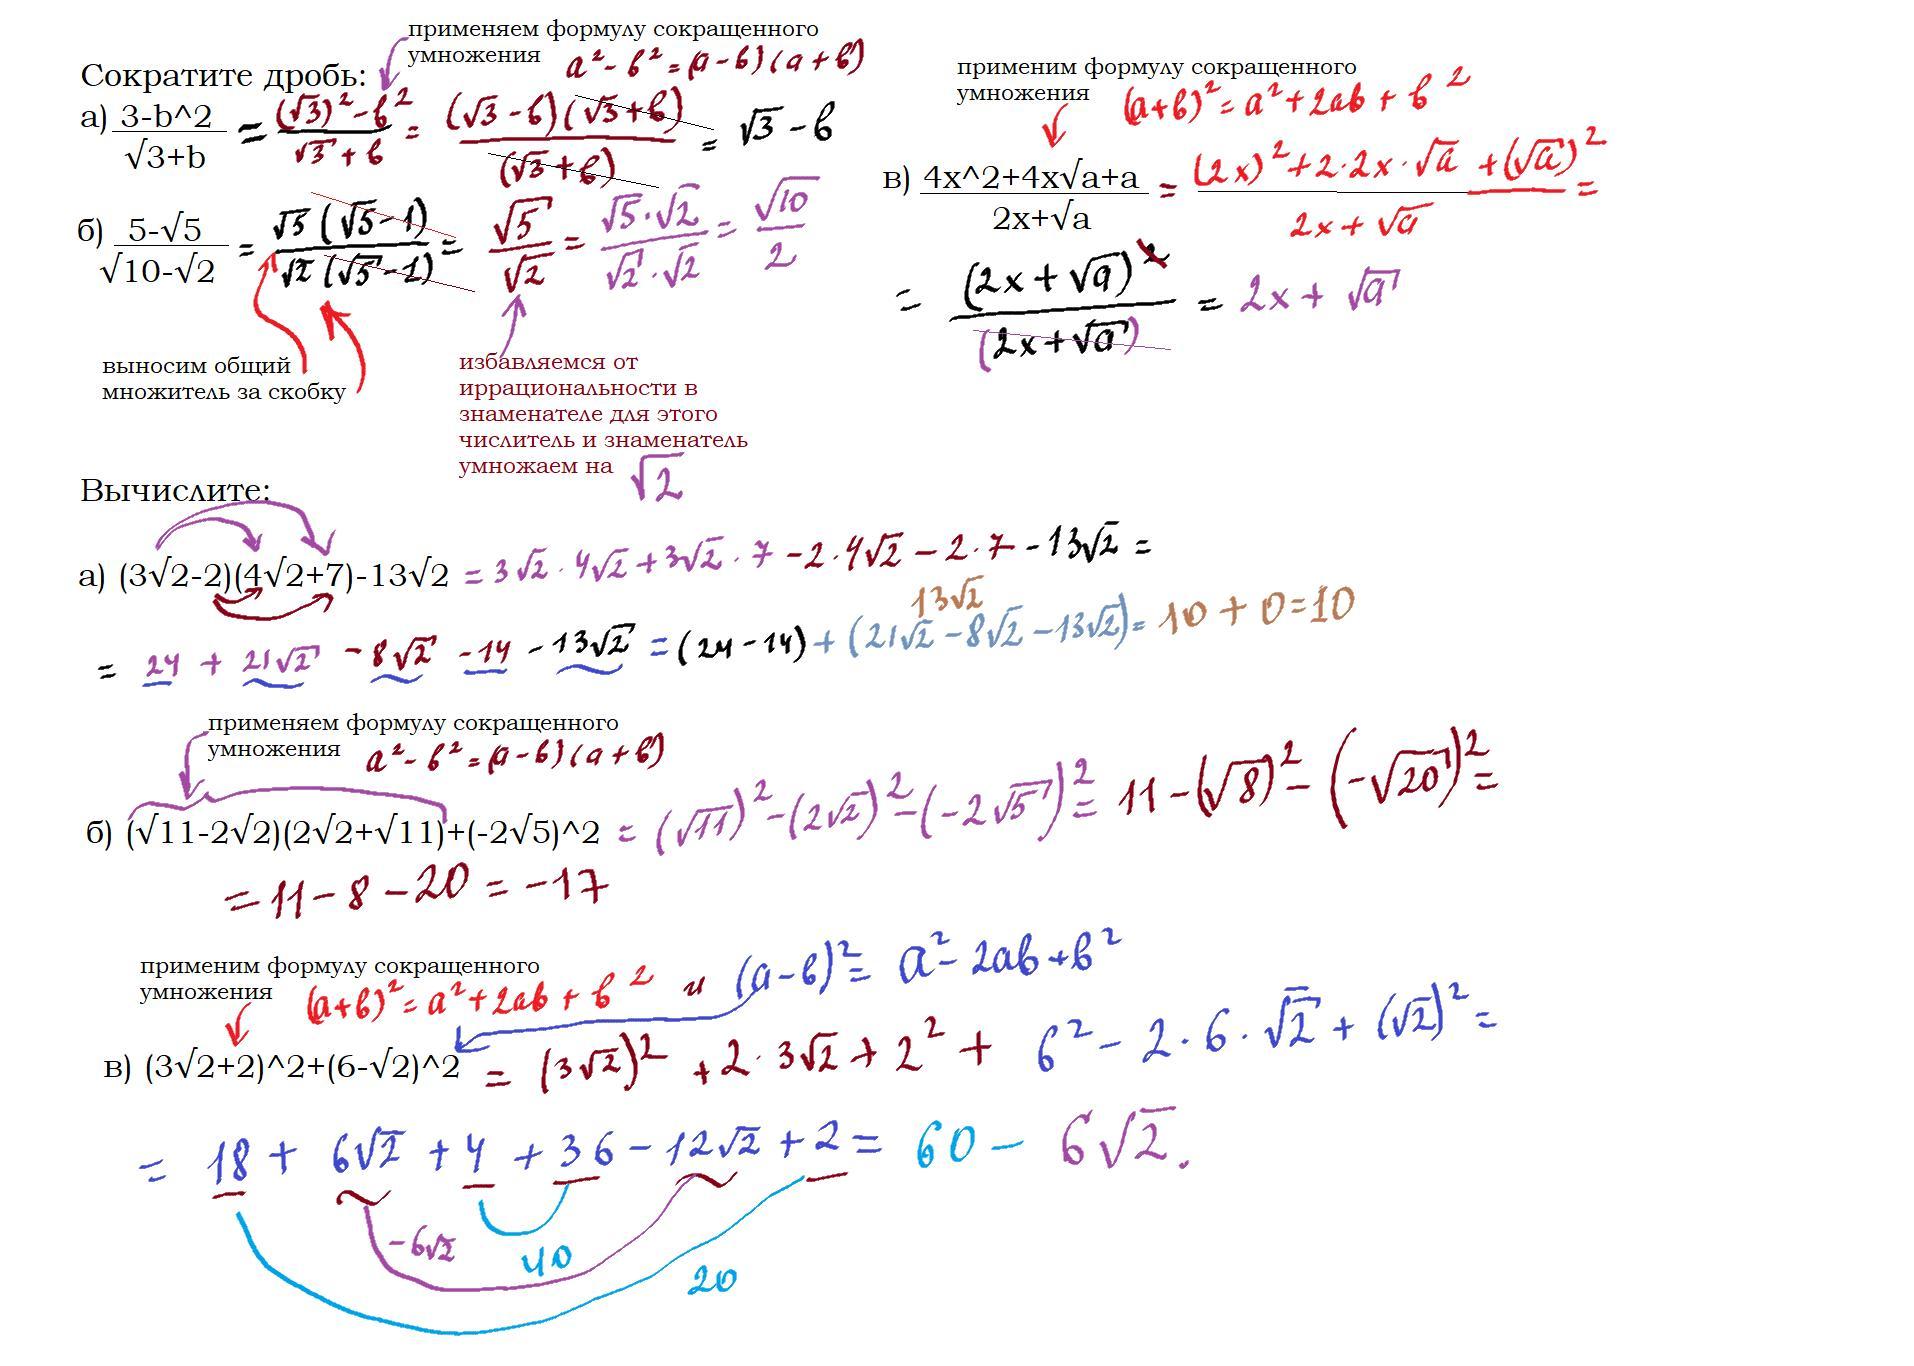 применяем формулу сокращенного
умножения a² - b² = (a - b)(a + b)
Сократите дробь:
а) 3-b^2 / √3+b = (√3)² - b² / √3 + b = (√3 - b)(√3 + b) / (√3 + b) = √3 - b
б) 5-√5 / √10-√2 = √5(√5 - 1) / √2(√5 - 1) = √5 / √2 = √5 · √2 / √2 · √2 = √10 / 2
выносим общий
множитель за скобку
избавляемся от
иррациональности в
знаменателе для этого
числитель и знаменатель
умножаем на √2
применим формулу сокращенного
умножения (a+b)² = a² + 2ab + b²
в) 4x^2+4x√a+a / 2x+√a = (2x)² + 2·2x·√a + (√a)² / 2x + √a =
= (2x + √a)² / (2x + √a) = 2x + √a
Вычислите:
а) (3√2-2)(4√2+7)-13√2 = 3√2 · 4√2 + 3√2 · 7 - 2 · 4√2 - 2 · 7 - 13√2 =
13√2
= 24 + 21√2 - 8√2 - 14 - 13√2 = (24 - 14) + (21√2 - 8√2 - 13√2) = 10 + 0 = 10
применяем формулу сокращенного
умножения a² - b² = (a - b)(a + b)
б) (√11-2√2)(2√2+√11)+(-2√5)^2 = (√11)² - (2√2)² - (-2√5)² = 11 - (√8)² - (-√20)² =
= 11 - 8 - 20 = -17
применим формулу сокращенного
умножения (a+b)² = a² + 2ab + b² и (a - b)² = a² - 2ab + b²
в) (3√2+2)^2+(6-√2)^2 = (3√2)² + 2 · 3√2 + 2² + 6² - 2 · 6 · √2 + (√2)² =
= 18 + 6√2 + 4 + 36 - 12√2 + 2 = 60 - 6√2.
-6√2
40
20